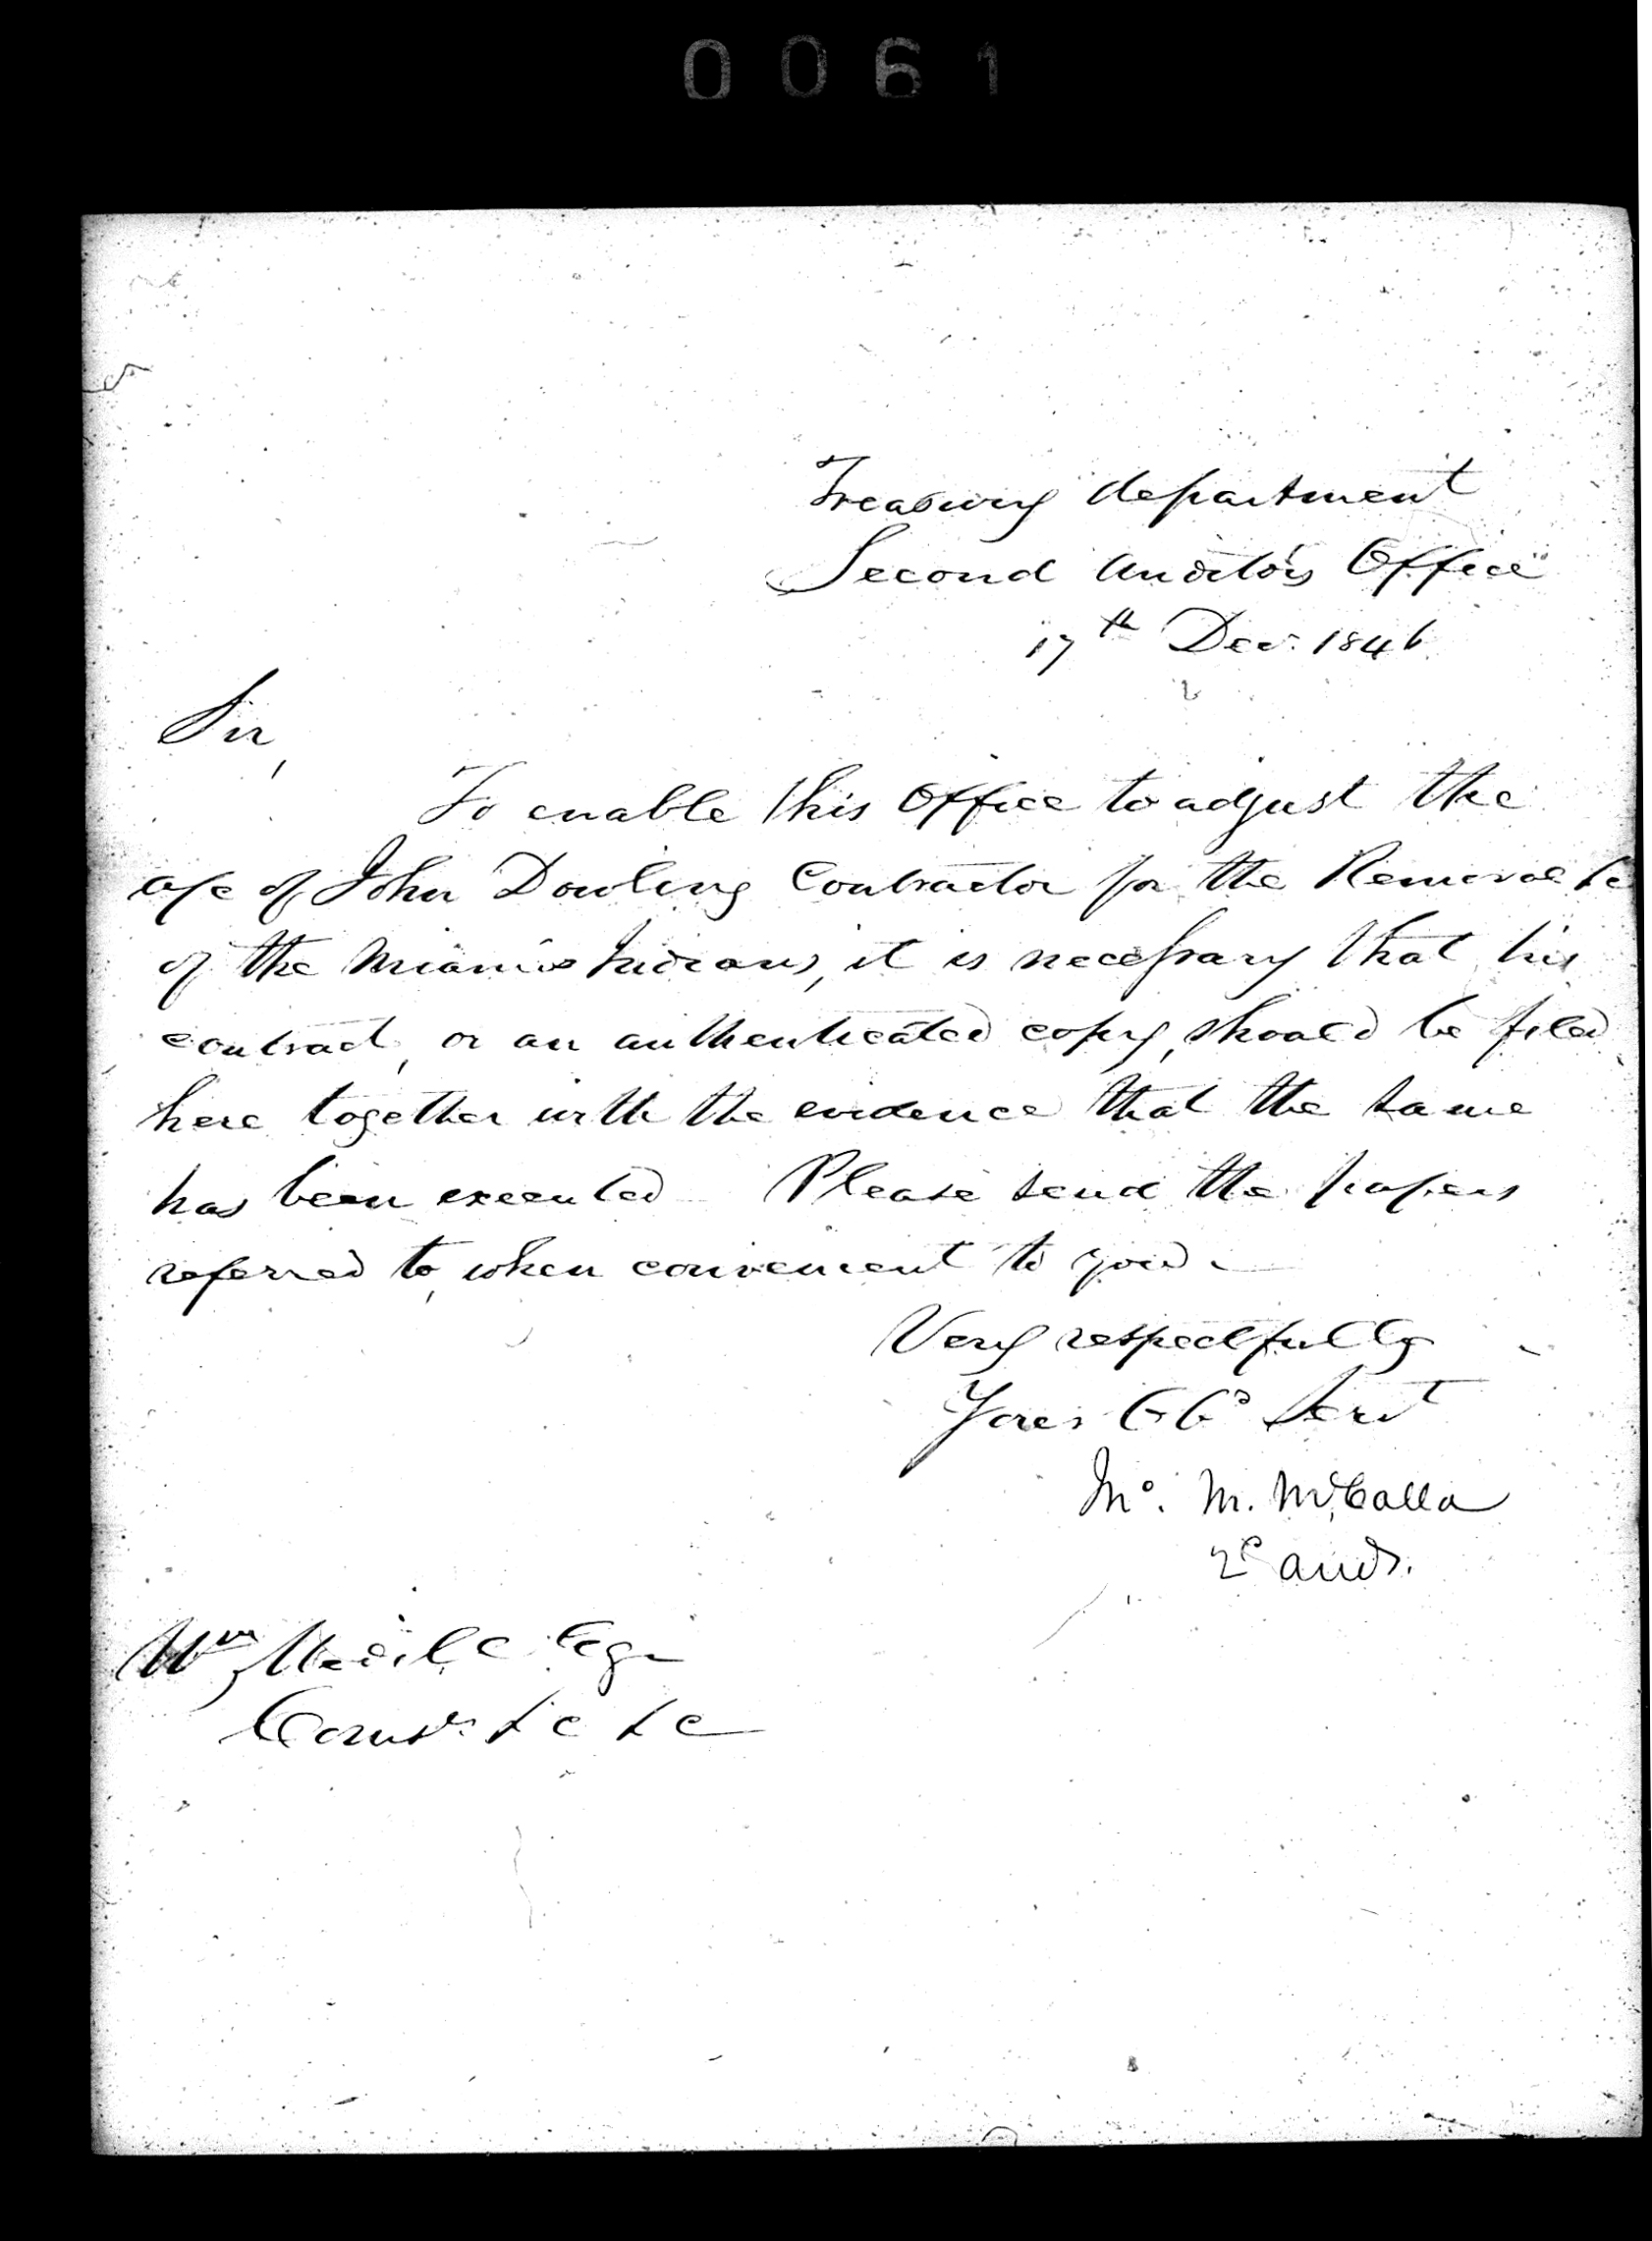 0061
Treasury department
Second Auditor's Office
17th Dec. 1846
Sir,
To enable this Office to adjust the
a/c of John Dowling Contractor for the Removal &c
of the Miami Indians, it is necessary that his
contract, or an authenticated copy, should be filed
here together with the evidence that the same
has been executed Please send the papers
referred to, when convenient to you.
Very respectfully
Your Ob Servt
Jno. M. McCalla
2d Audr.
Wm Medill Esqr
Comr. &c &c